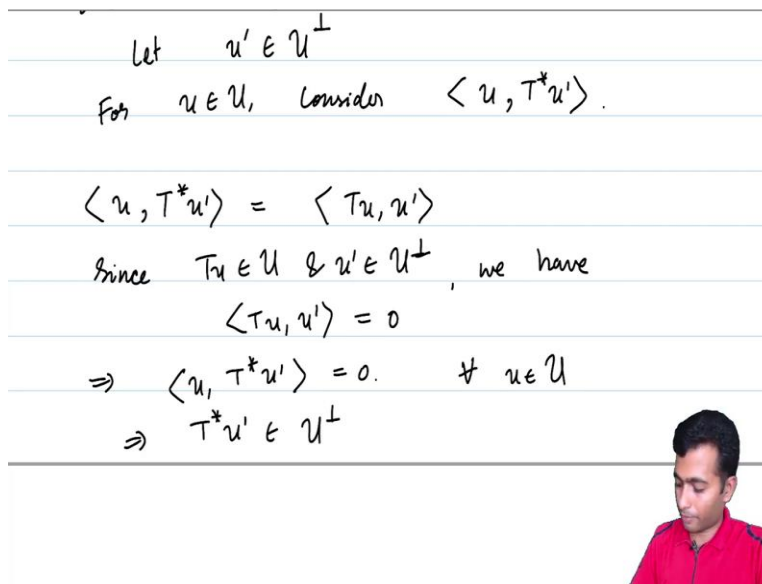 Let u' ∈ U^⊥
For u ∈ U, consider ⟨u, T*u'⟩.
⟨u, T*u'⟩ = ⟨Tu, u'⟩
Since Tu ∈ U & u' ∈ U^⊥, we have
⟨Tu, u'⟩ = 0
⇒ ⟨u, T*u'⟩ = 0. ∀ u ∈ U
⇒ T*u' ∈ U^⊥